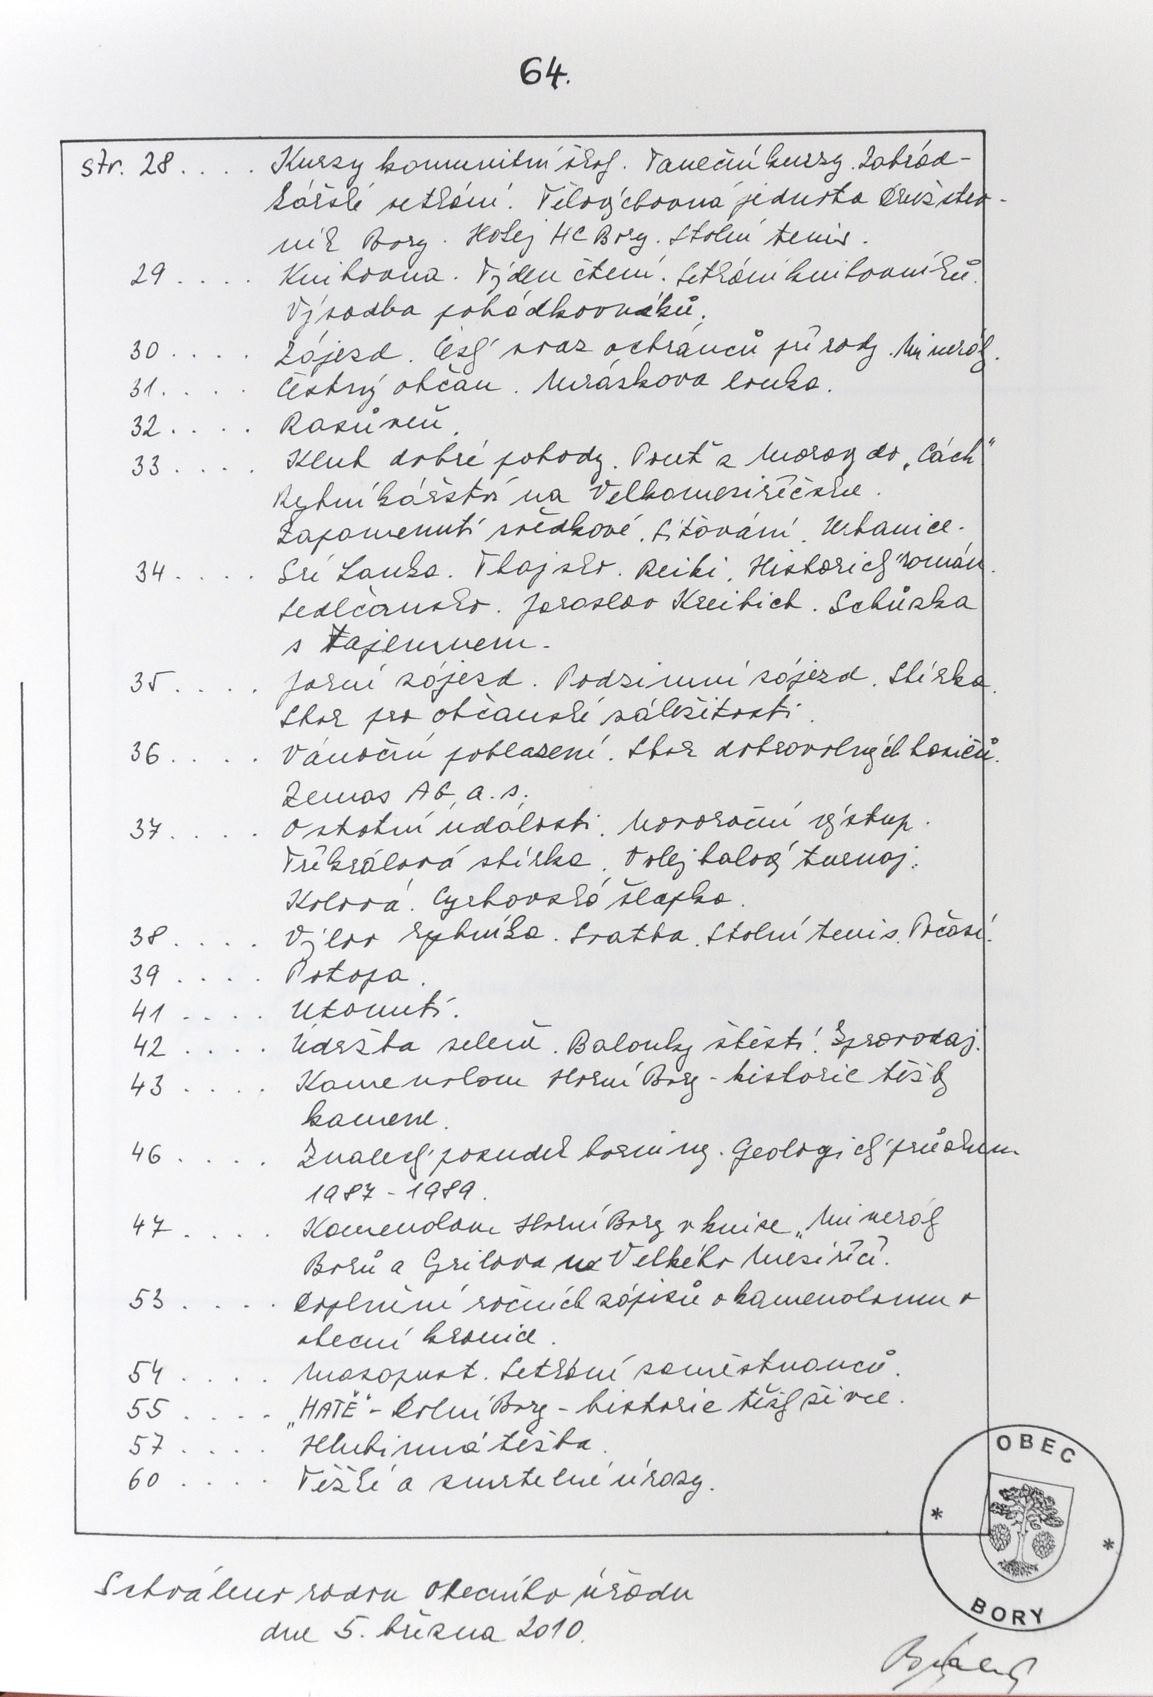 64.
str. 28 .... Kurzy komunitní školy. Taneční kurzy. Zahrád-
kářské setkání. Tělovýchovná jednota Družstev-
ník Bory. Hokej HC Bory. Stolní tenis.
29 .... Knihovna. Týden čtení. Setkání knihovníků.
Výsadba pohádkovníků.
30 .... Zájezd. Český svaz ochránců přírody. Minerály.
31 .... Čestný občan. Mráskova louka.
32 ....
33 .... Klub dobré pohody. Pouť z Moravy do „Cách"
Rybníkářství na Velkomeziříčsku.
Zapomenutí svědkové. Síťování. Urbanice.
34 .... Srí Lanka. Thajsko. Reiki. Historický román.
Sedlčansko. Jaroslav Kreibich. Schůzka
s tajemnem.
35 .... Jarní zájezd. Podzimní zájezd. Sbírka.
Sbor pro občanské záležitosti.
36 .... Vánoční pohlazení. Sbor dobrovolných hasičů.
Zemas AG, a.s.
37 .... Ostatní události. Novoroční výstup.
Tříkrálová sbírka. Volejbalový turnaj.
Kolová. Cyrhovská šlapka.
38 .... Výlov rybníka. Svatba. Stolní tenis. Počasí.
39 .... Potopa.
41 .... Utonutí.
42 .... Údržba zeleně. Balonky štěstí. Zpravodaj.
43 .... Kamenolom Horní Bory - historie těžby
kamene.
46 .... Znalecký posudek horniny. Geologický průzkum
1987 - 1989.
47 .... Kamenolom Horní Bory v knize „Minerály
Borů a Cyrilova na Velkého Meziříčí.
53 .... Doplnění ročních zápisů o kamenolomu v
obecní kronice.
54 .... Masopust. Setkání zaměstnanců.
55 .... „HATĚ" - Dolní Bory - historie těžby živce.
57 .... Hlubinná těžba.
60 .... Těžké a smrtelné úrazy.
Schváleno radou Obecního úřadu
dne 5. března 2010.
OBEC
BORY